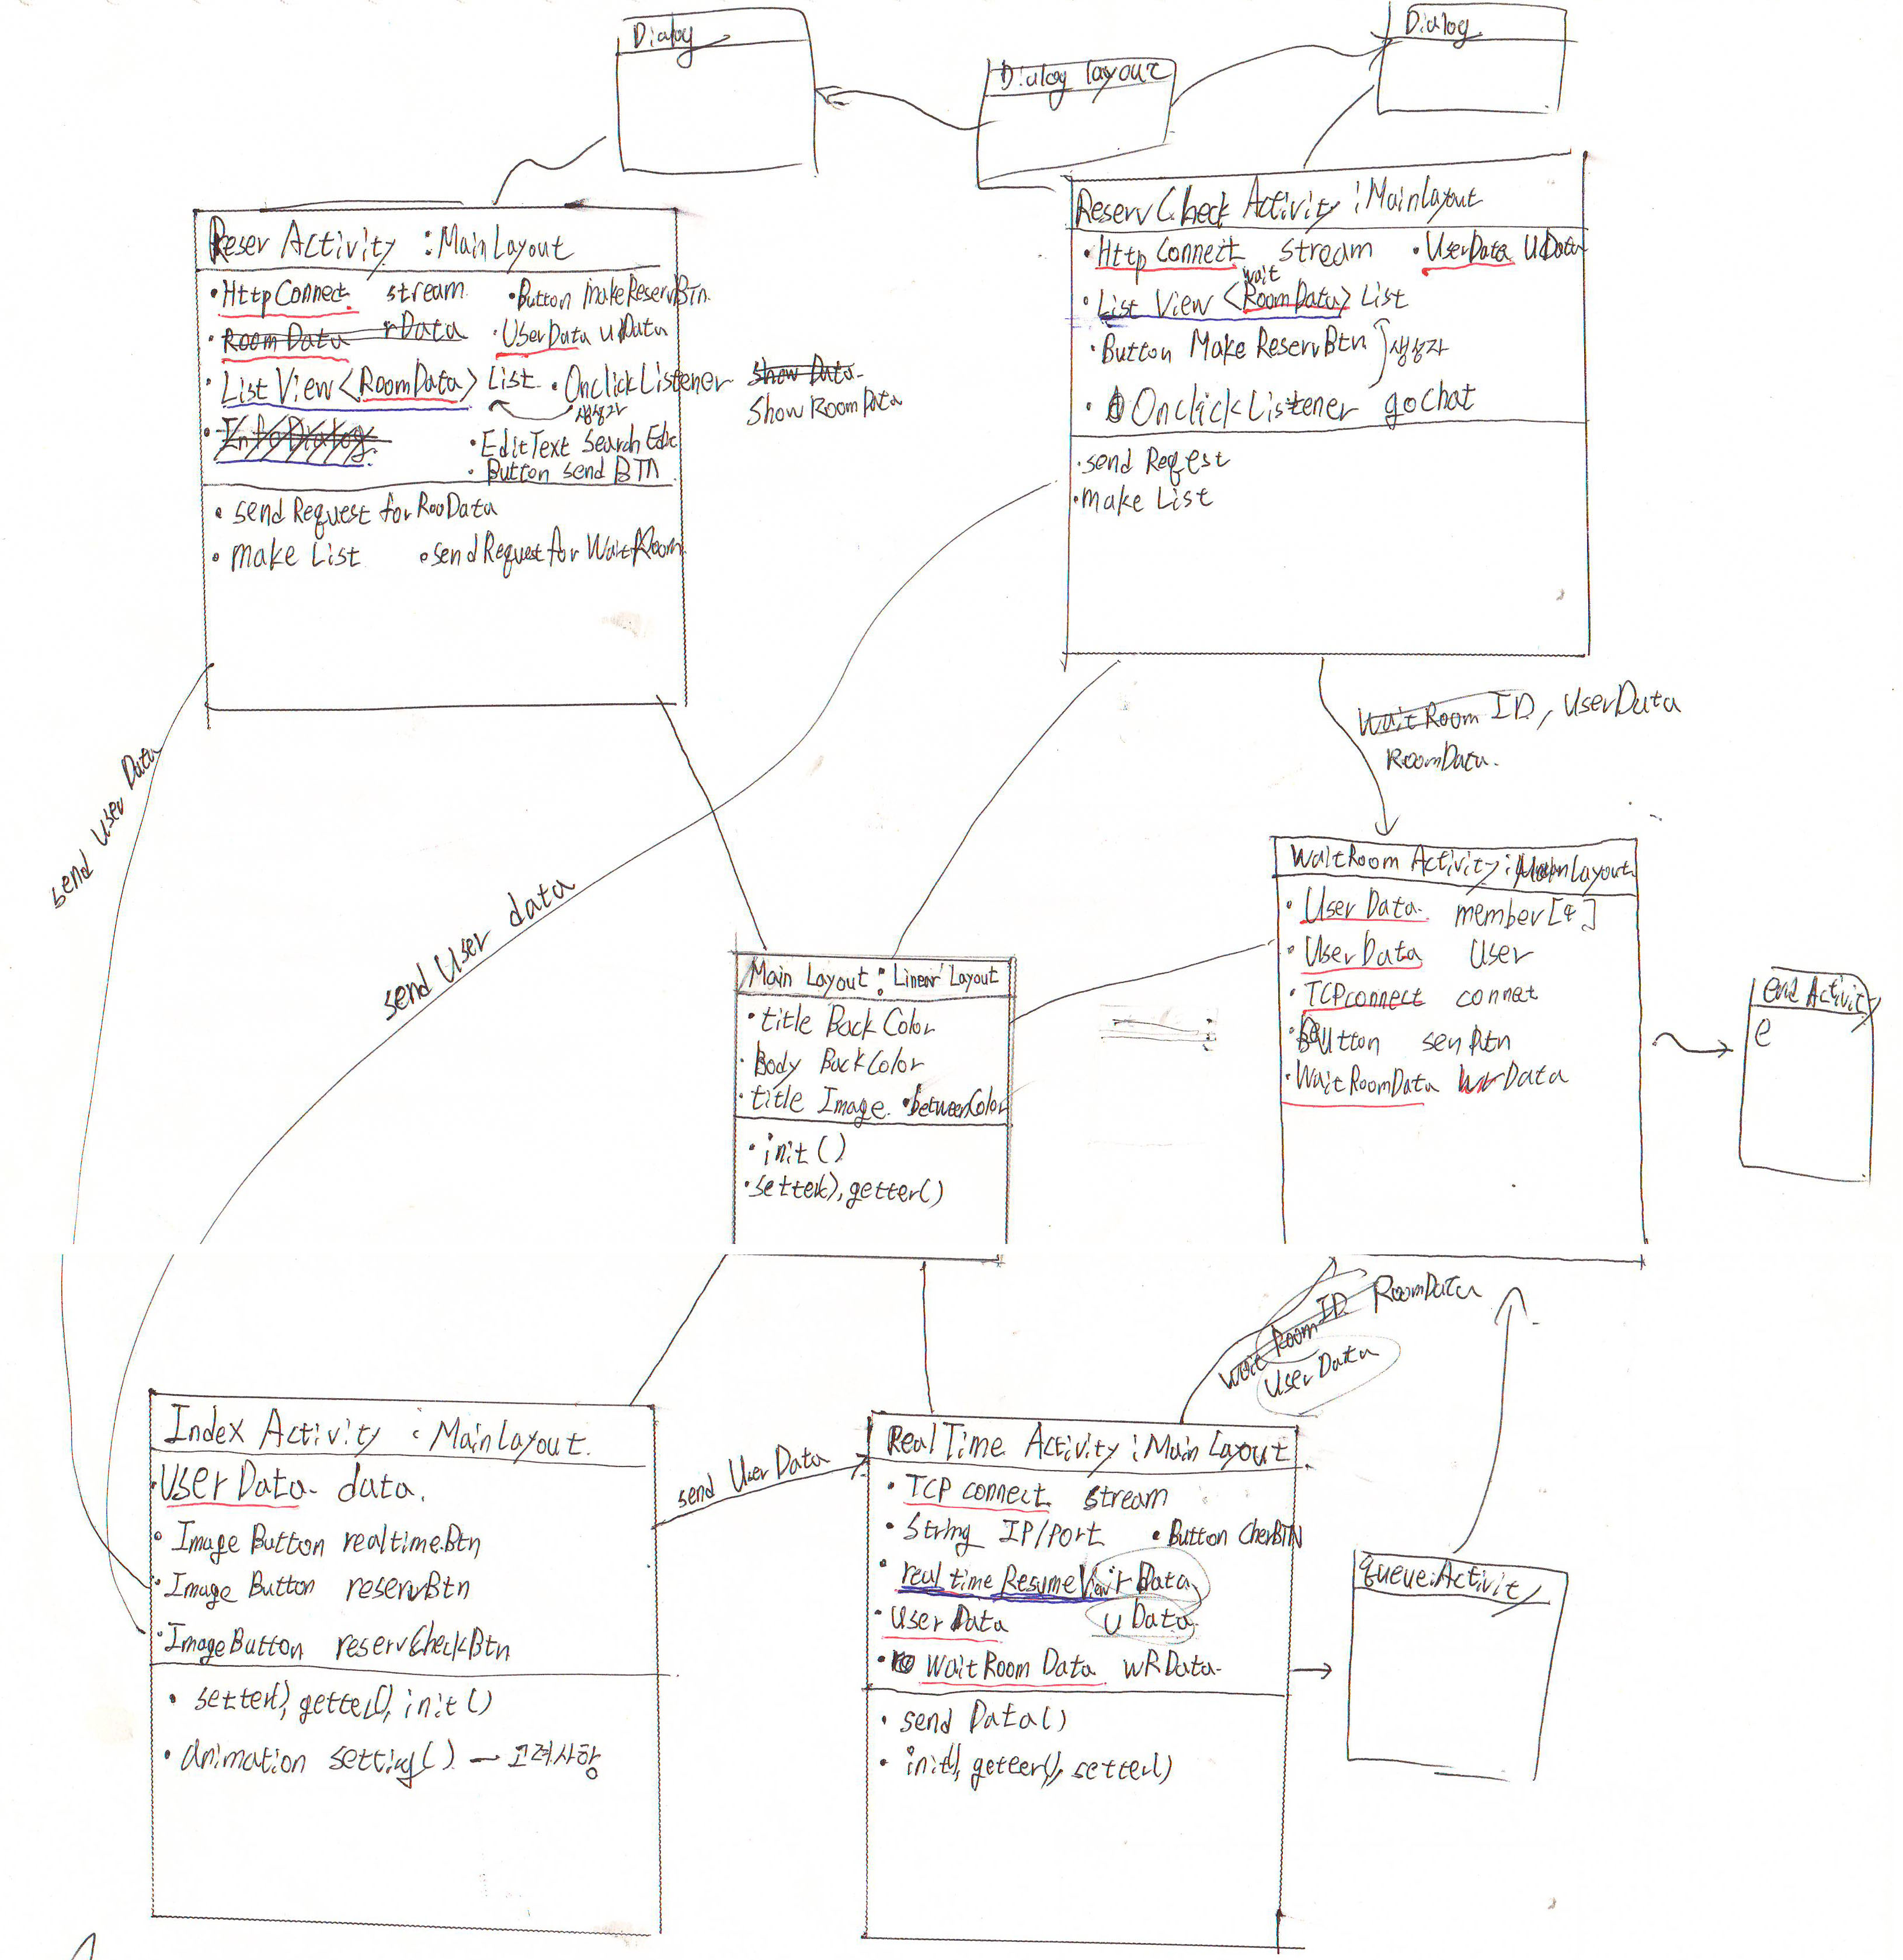 Dialog
Dialog layout
Dialog
Reser Activity : MainLayout
• HttpConnect stream
• Button makeReservBtn.
• RoomData rData
• UserData uData
• List View <RoomData> List
• OnclickListener
Show Data
Show RoomData
생성자
• InfoDialog
• EditText SearchEdit
• Button send BTN
• send Request for RooData
• make List
• send Request for WaitRoom
Reserv Check Activity : MainLayout
• Http Connect stream
• UserData UData
wait
• List View <RoomData> List
• Button Make ReservBtn
생성자
• OnclickListener goChat
• send Reqest
• make List
WaitRoom ID, UserData
RoomData.
send User Data
send User data
WaitRoom Activity : MainLayout
• User Data member[4]
• UserData User
• TCPconnect connet
• Button senBtn
• WaitRoomData wrData
end Activity
e
Main Layout : Linear Layout
• title Back Color
• Body BackColor
• title Image • betweenColor
• init()
• setter(), getter()
wait Room ID RoomData
User Data
Index Activity : MainLayout.
• User Data data.
• Image Button realtimeBtn
• Image Button reservBtn
• ImageButton reservCheckBtn
• setter(), getter(), init()
• animation setting() — 고려사항
send UserData
RealTime Activity : Main Layout
• TCP connect stream
• String IP/port • Button CherBTN
• real time ResumeView rData
• User Data uData
• WaitRoom Data wRData
• send Data()
• init(), getter(), setter()
queue:Activity